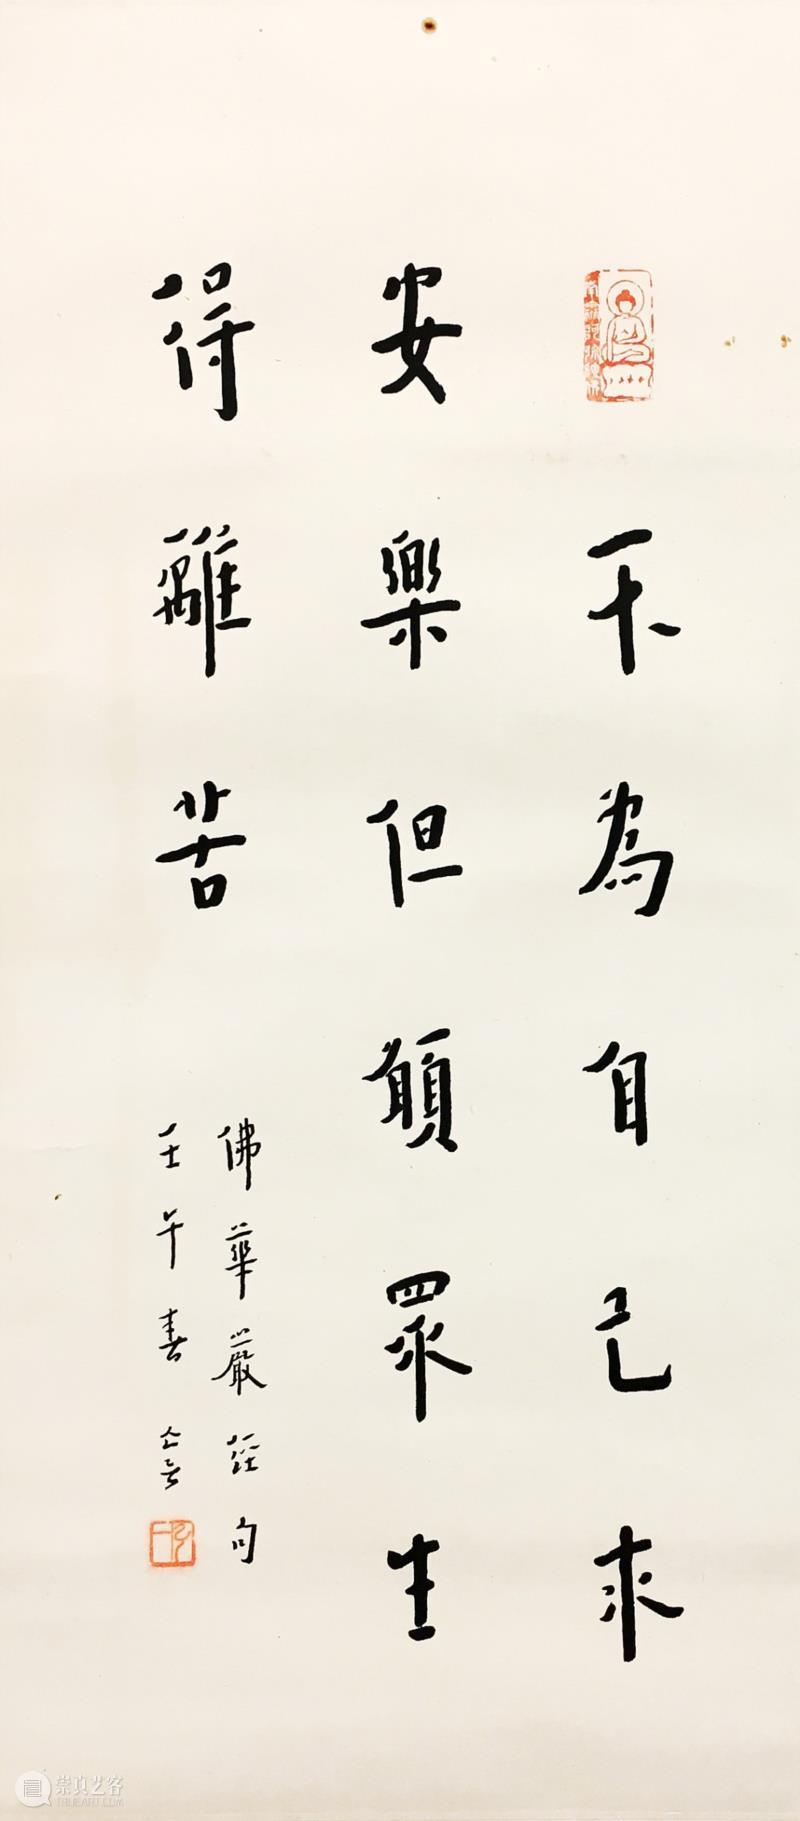 不為自己求
安樂但願眾生
得離苦
佛華嚴經句
壬午春
崇真艺客
TRUEART.COM